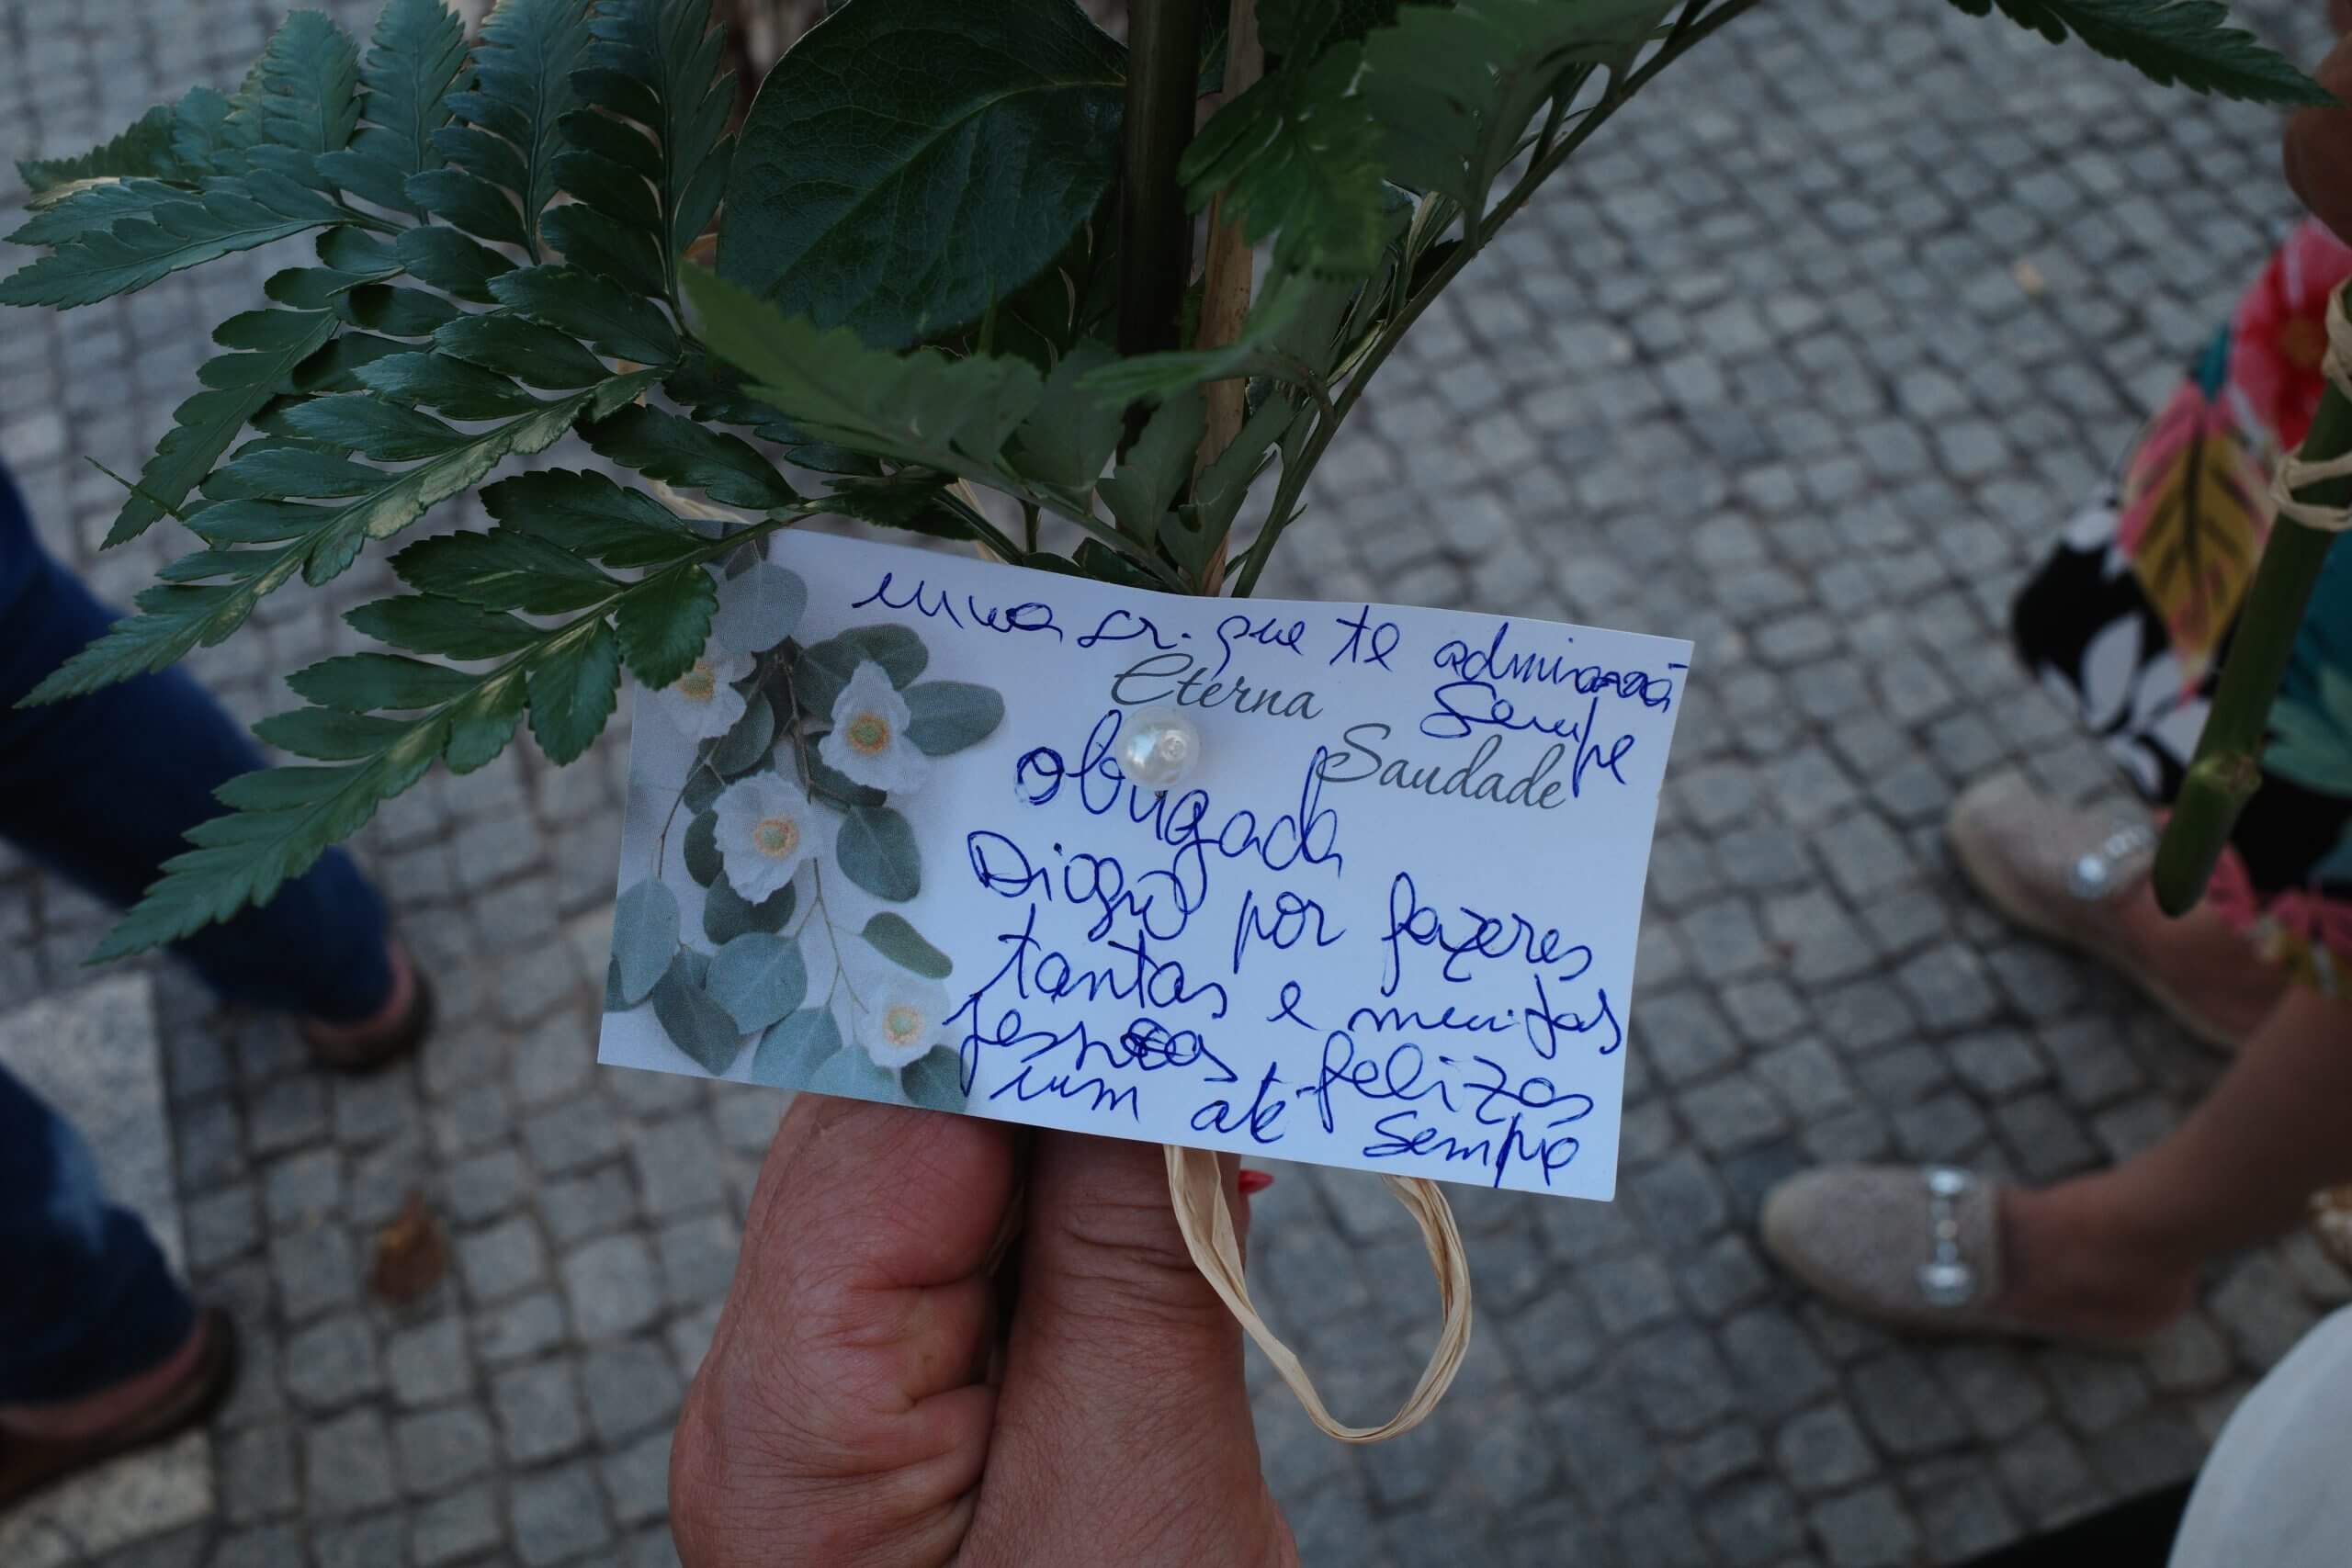 uma sr. que te admirará
Sempe
Eterna
Saudade
obrigada
Diogo por fazeres
tantas e muitas
pessoas felizes
um até sempre